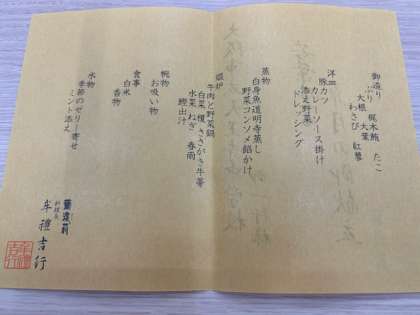 御造り
ぶり 梶木鮪 たこ
大根 大葉 紅蓼
わさび
洋皿
豚カツ
カレーソース掛け
添え野菜
ドレッシング
蒸物
白身魚道明寺蒸し
野菜コンソメ餡かけ
牛肉と野菜鍋
白菜 榎 ささがき牛蒡
水菜 ねぎ 春雨
鰹出汁
椀物
お吸い物
食事
白米
香物
水物
季節のゼリー寄せ
ミント添え
料理長
牟禮吉行